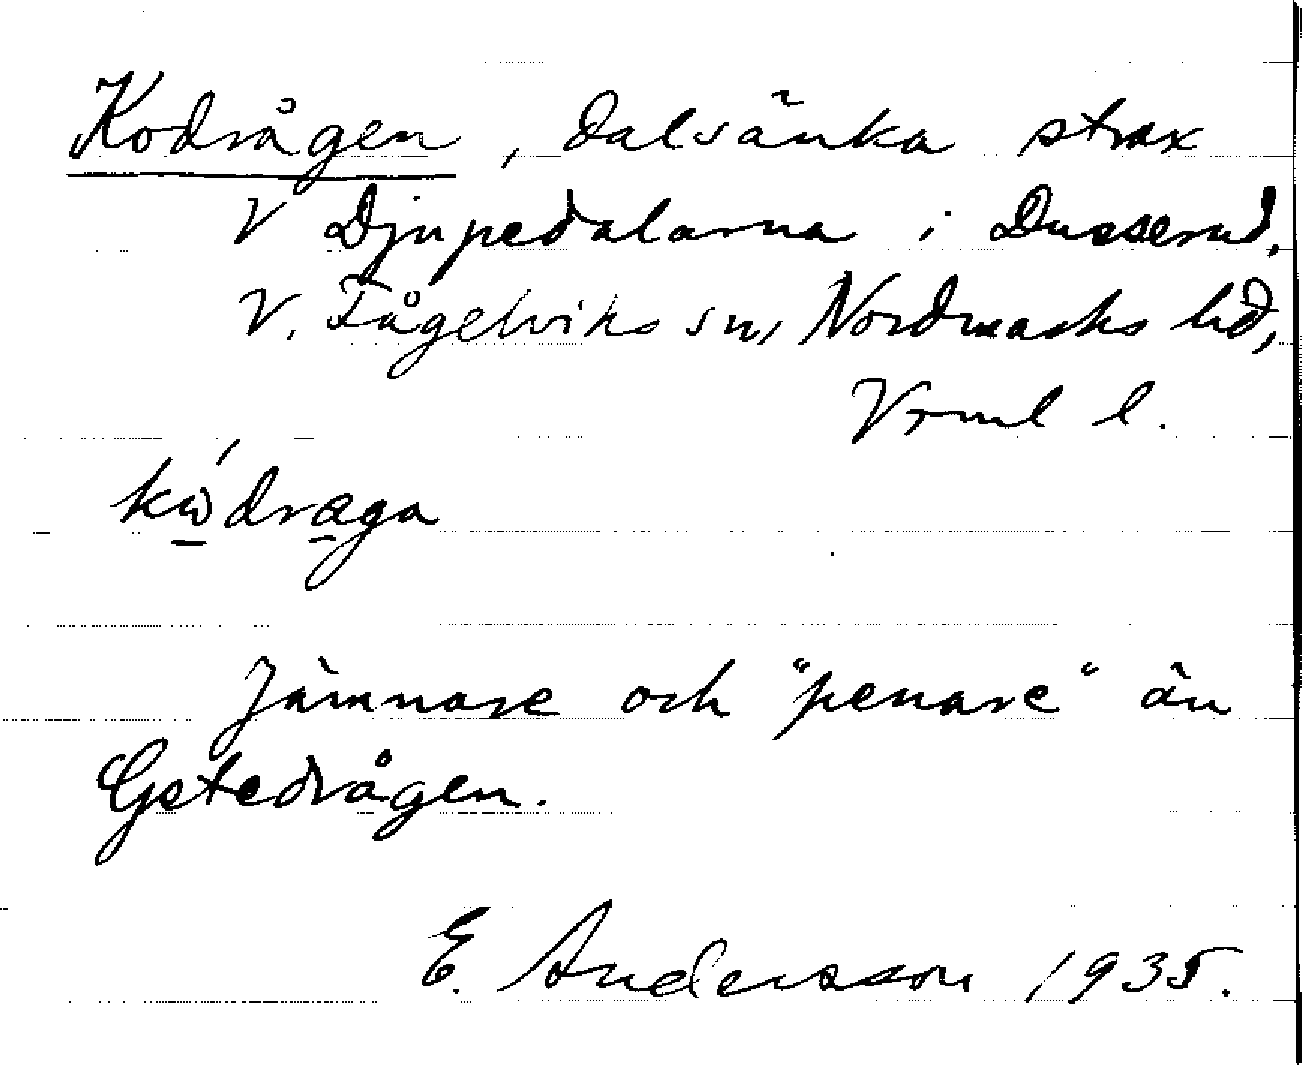 Kodrågen, dalsänka strax
V Djupedalarna i Dusserud,
V. Fågelviks sn, Nordmarks hd,
Vrml l.
kọ̀dråga
Jämnare och "penare" än
Gstedrågen.
E. Andersson 1935.